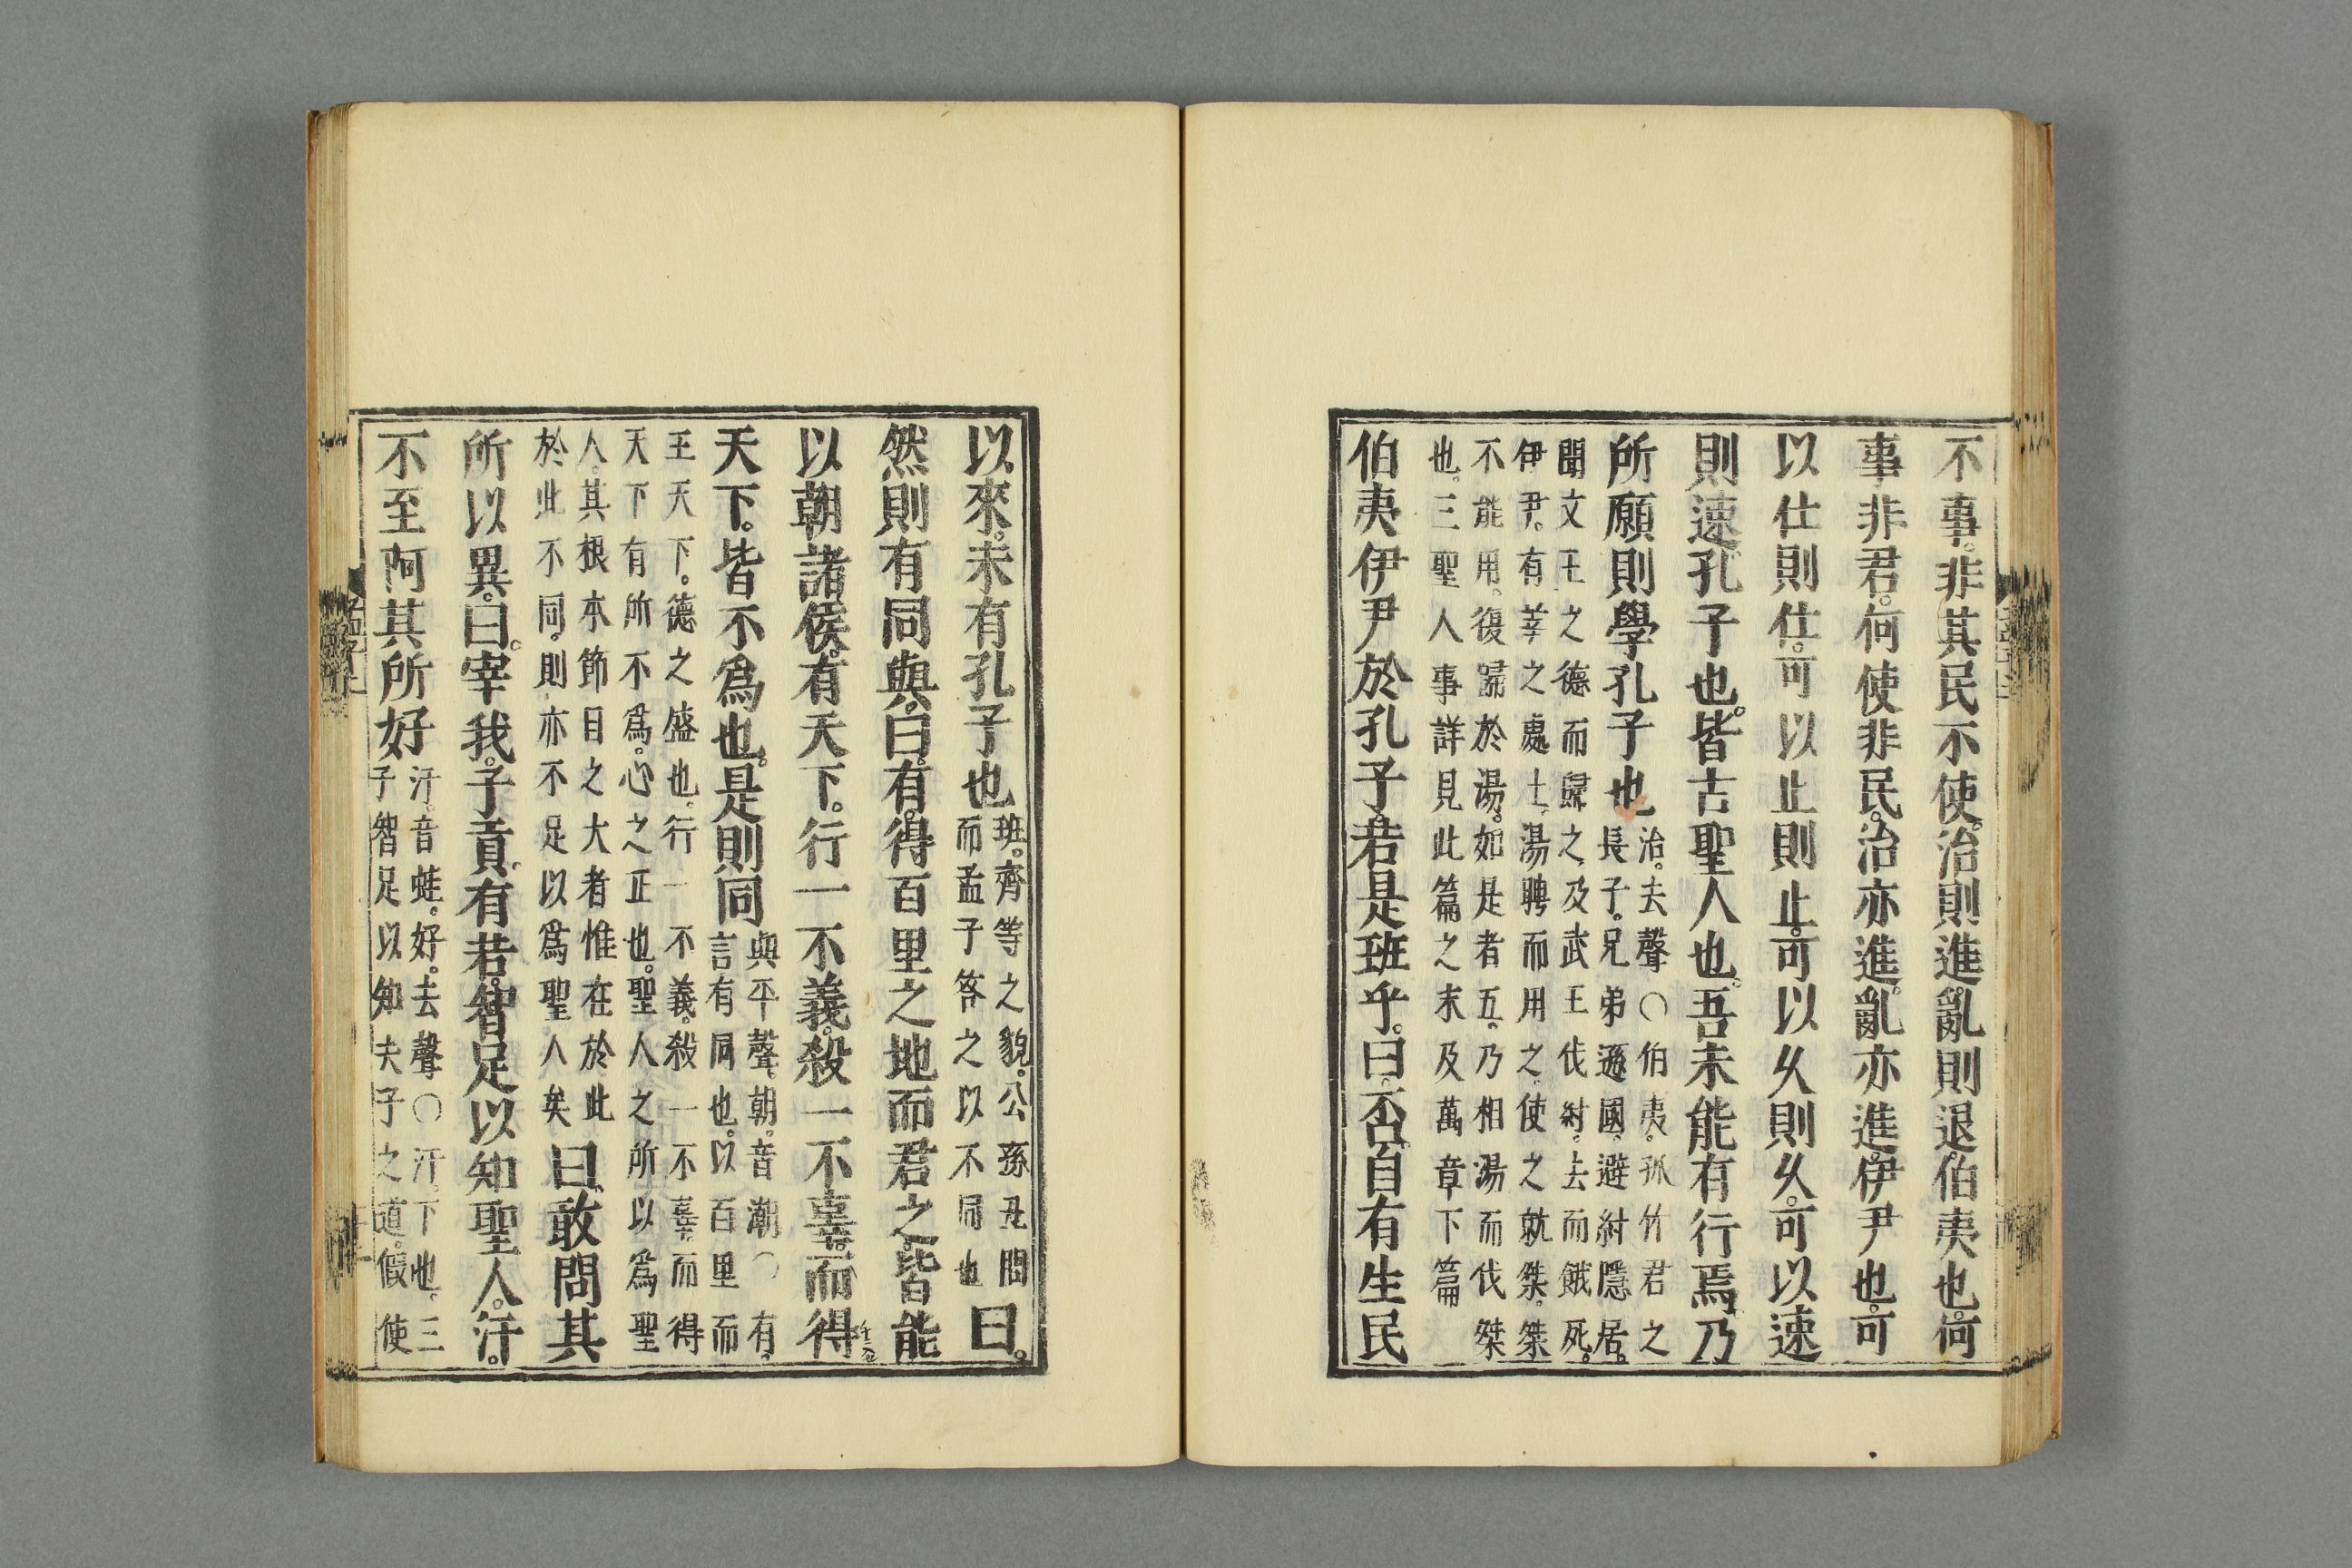 不事。非其民不使。治則進。亂則退。伯夷也。何
事非君。何使非民。治亦進。亂亦進。伊尹也。可
以仕則仕。可以止則止。可以久則久。可以速
則速。孔子也。皆古聖人也。吾未能有行焉。乃
所願則學孔子也
治。去聲〇伯夷。孤竹君之
長子。兄弟遜國。避紂隱居。
聞文王之德而歸之。及武王伐紂。去而餓死。
伊尹。有莘之處士。湯聘而用之。使之就桀。桀
不能用。復歸於湯。如是者五。乃相湯而伐桀
也。三聖人事詳見此篇之末及萬章下篇
伯夷伊尹於孔子。若是班乎。曰。否。自有生民
以來。未有孔子也
班。齊等之貌。公孫丑問
而孟子答之以不同也
曰。
然則有同與。曰。有。得百里之地而君之。皆能
以朝諸侯。有天下。行一不義。殺一不辜。而得
天下。皆不爲也。是則同
與平聲。朝。音潮〇有。
言有同也。以百里而
王天下。德之盛也。行一不義。殺一不辜。而得
天下有所不爲。心之正也。聖人之所以爲聖
人。其根本節目之大者惟在於此
於此不同。則亦不足以爲聖人矣
曰。敢問其
所以異。曰。宰我。子貢。有若。智足以知聖人。汙。
不至阿其所好
汙。音蛙。好。去聲〇汙。下也。三
子智足以知夫子之道。假使